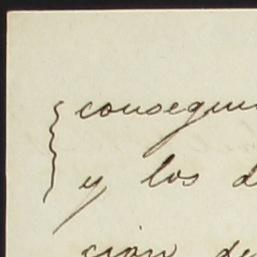 consegui
y los d
ción de